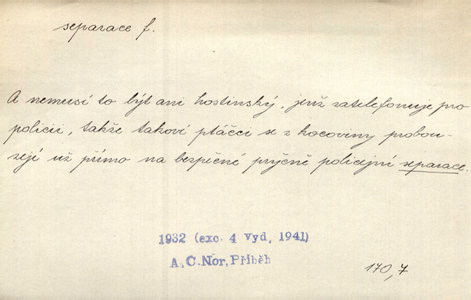 separace f.
A nemusí to být ani hostinský, jenž zatelefonuje pro
policii, takže takoví ptáčci se z kocoviny probou-
zejí už přímo na bezpečné pryčně policejní separace.
1932 (exc. 4 vyd, 1941)
A.C.Nor, Příběh
170,7